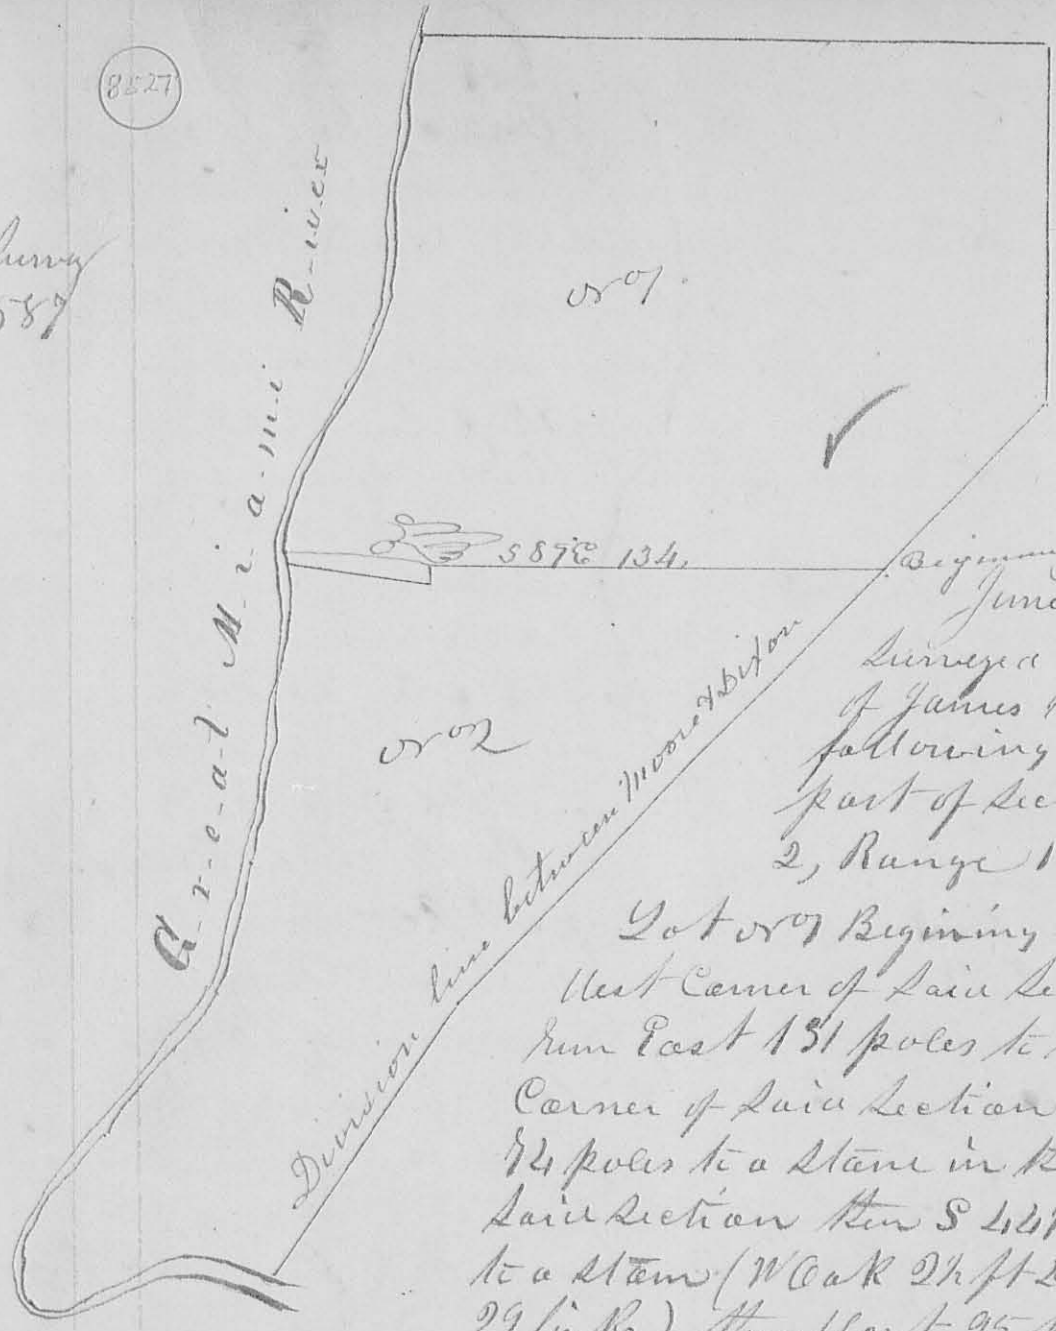 8527
Survey
587
Great Miami River
No 1
S 89 E 134.
No 2
Division line between Moore & Dixon
June
Surveyed
of James
following
part of Sec
2, Range 1
Lot No 1 Begining
West Corner of Said Se
Run East 131 poles to
Corner of Said Section
poles to a Stone in
Said Section then S
to a Stone (W Oak ft